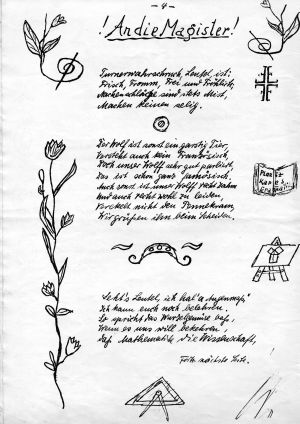 - 4 -
! An die Magister !
Turnerwahrspruch, Leutel, ist:
Frisch, Fromm, Frei und Fröhlich,
Nackenschläge sind stets Mist,
Machen keinen selig.
Der Wolf ist sonst ein garstig Tier,
Versteht auch kein Französisch,
Doch unser Wolff sehr gut parliert,
Das ist schon ganz
Auch sonst ist unser Wolff recht zahm
Und auch recht wohl zu leiden,
nicht den
Wir grüßen ihn beim Scheiden.
Seht's Leutel, ich hab' a Augenmaß!
Ich kann euch noch belehren.
So spricht das Wurzelgemüse baß,
Wenn es uns will bekehren,
Daß Mathematik die Wissenschaft,
Forts. nächste Seite.